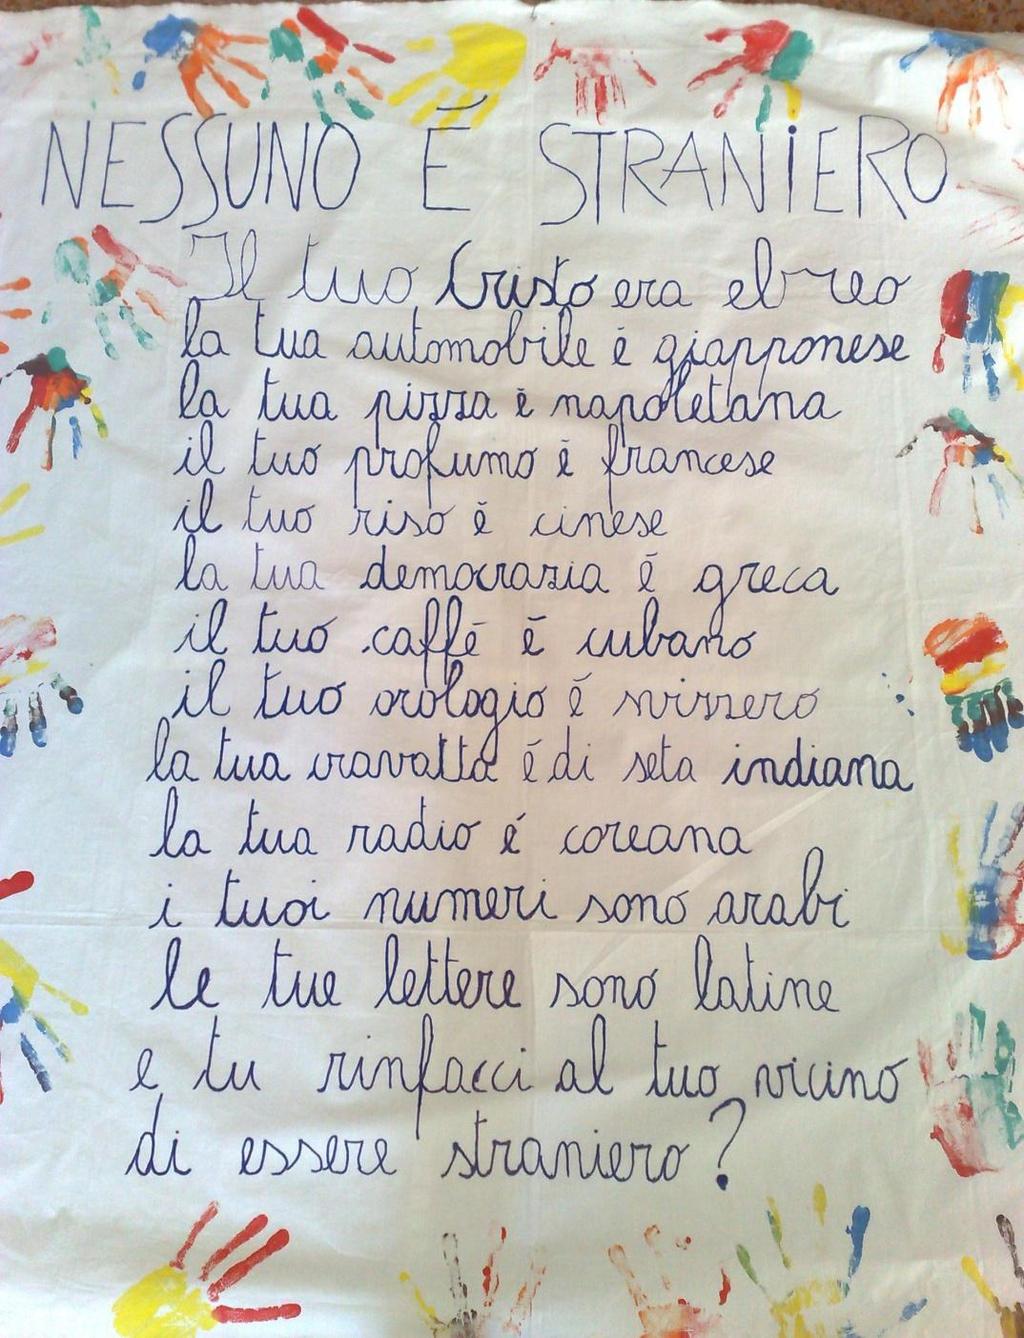 NESSUNO É STRANIERO
Il tuo Cristo era ebreo
la tua automobile é giapponese
la tua pizza è napoletana
il tuo profumo è francese
il tuo riso é cinese
la tua democrazia é greca
il tuo caffé é cubano
il tuo orologio é svizzero
la tua cravatta é di seta indiana
la tua radio é coreana
i tuoi numeri sono arabi
le tue lettere sono latine
e tu rinfacci al tuo vicino
di essere straniero?